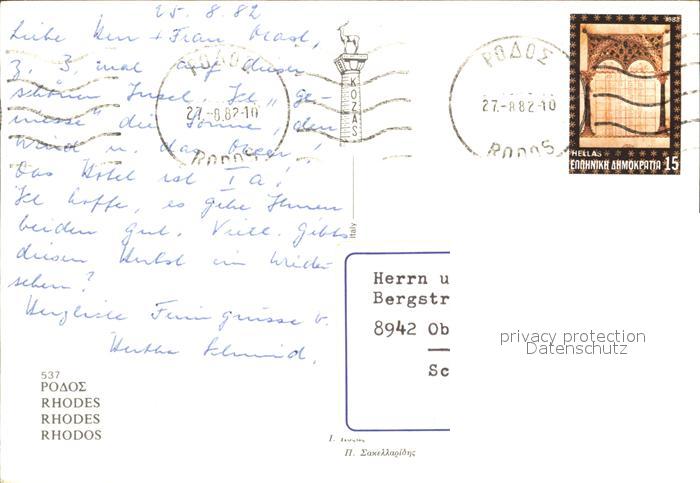 25.8.82
Liebe Herr + Frau
z. 3. mal auf dieser
schönen Insel. Ich "ge-
niesse" die Sonne, den
Wind u. das Meer!
Das Hotel ist I a!
Ich hoffe, es gehe Ihnen
beiden gut. Viell. gibts
diesen Herbst ein Wieder-
sehen?
Herzliche Feriengrüsse v.
Hertha Schmid.
ΡΟΔΟΣ
27.-8.82-10
RODOS
KOZAS
ΡΟΔΟΣ
27.-8.82-10
RODOS
1982
HELLAS
ΕΛΛΗΝΙΚΗ ΔΗΜΟΚΡΑΤΙΑ 15
Italy
Herrn u
Bergstr
8942 Ob
Sc
privacy protection
Datenschutz
537
ΡΟΔΟΣ
RHODES
RHODES
RHODOS
Π. Σακελλαρίδης